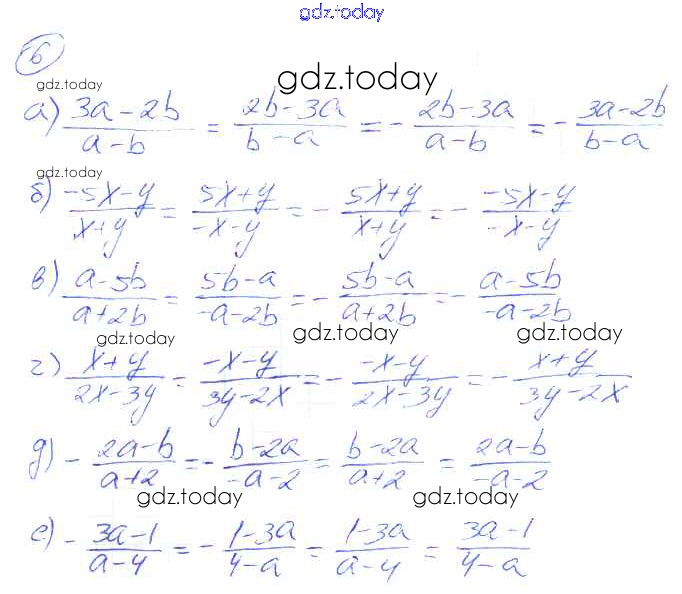 gdz.today
6
gdz.today
gdz.today
а) (3a-2b)/(a-b) = (2b-3a)/(b-a) = -(2b-3a)/(a-b) = -(3a-2b)/(b-a)
gdz.today
б) (-5x-y)/(x+y) = (5x+y)/(-x-y) = -(5x+y)/(x+y) = -(-5x-y)/(-x-y)
в) (a-5b)/(a+2b) = (5b-a)/(-a-2b) = -(5b-a)/(a+2b) = -(a-5b)/(-a-2b)
gdz.today gdz.today gdz.today
г) (x+y)/(2x-3y) = (-x-y)/(3y-2x) = -(-x-y)/(2x-3y) = -(x+y)/(3y-2x)
д) -(2a-b)/(a+2) = -(b-2a)/(-a-2) = (b-2a)/(a+2) = (2a-b)/(-a-2)
gdz.today gdz.today
е) -(3a-1)/(a-4) = -(1-3a)/(4-a) = (1-3a)/(a-4) = (3a-1)/(4-a)